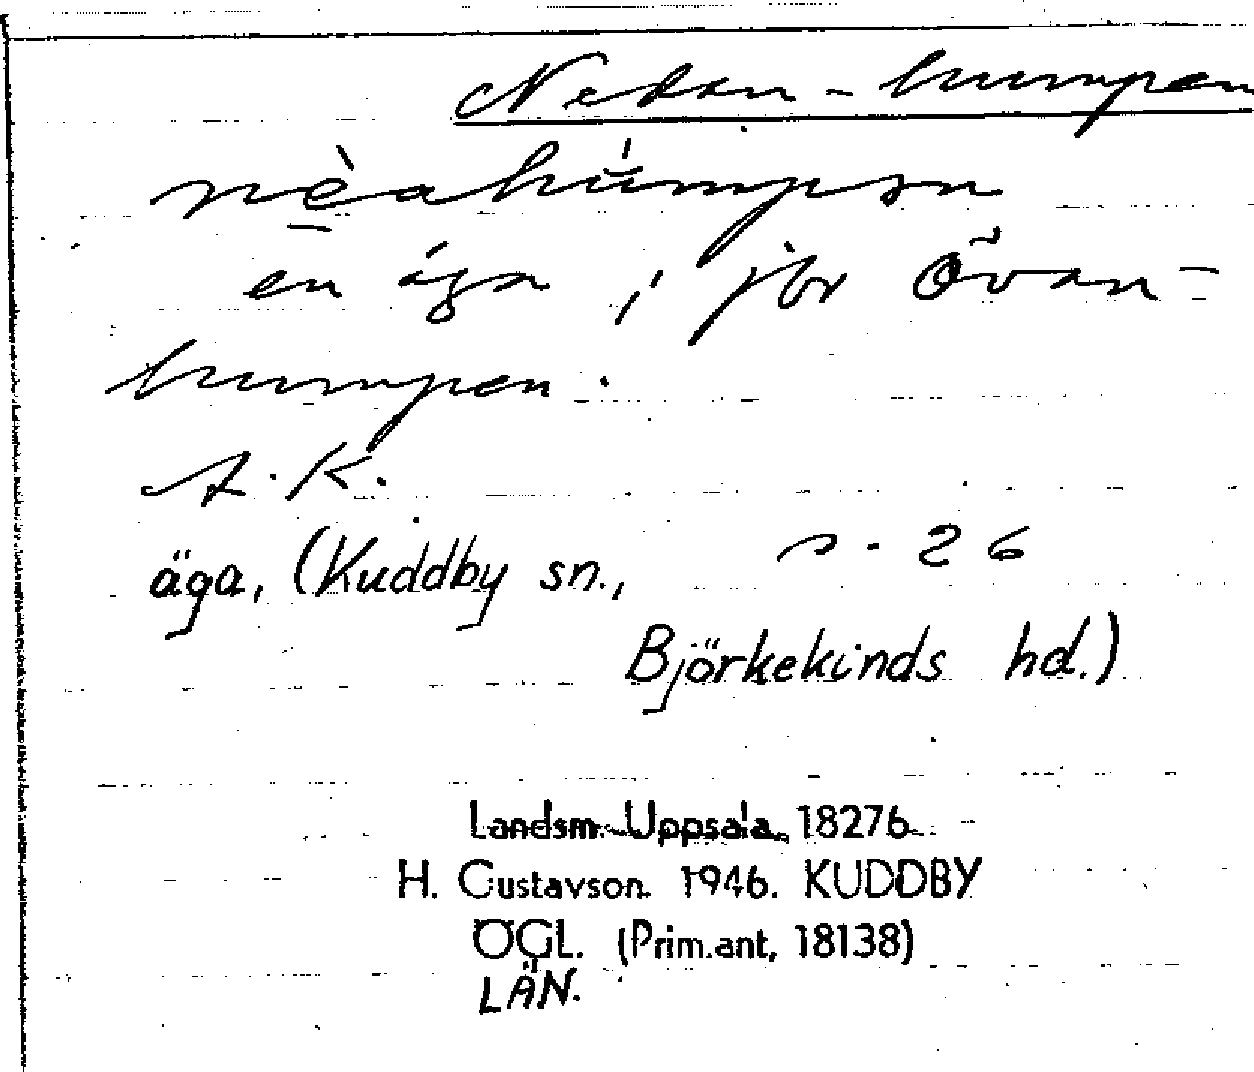 Nedan-humpen
nèahúmpən
en äga, jör Övan-
humpen.
A. K.
s. 26
äga, (Kuddby sn.,
Björkekinds hd.)
Landsm. Uppsala 18276
H. Gustavson 1946. KUDDBY
ÖGL. (Prim.ant, 18138)
LÄN.